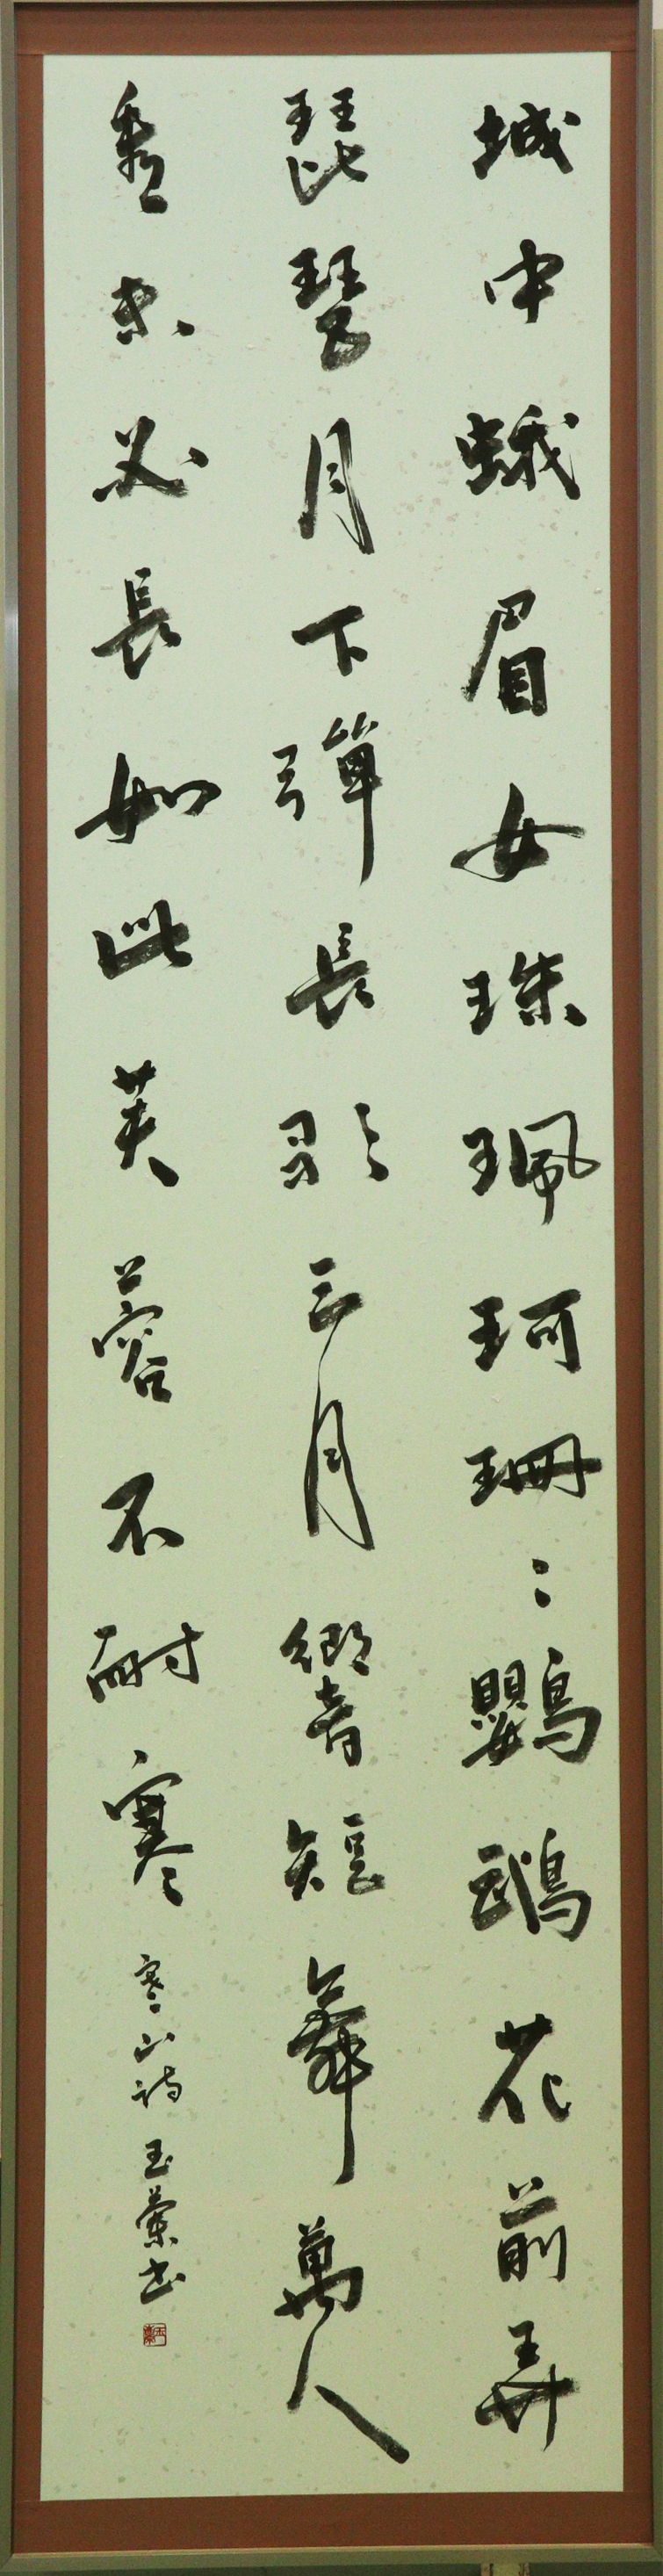 城中蛾眉女珠珮珂珊〻鸚鵡花前弄
琵琶月下彈長歌三月響短舞萬人
看未必長如此芙蓉不耐寒
寒山詩 玉蘭書